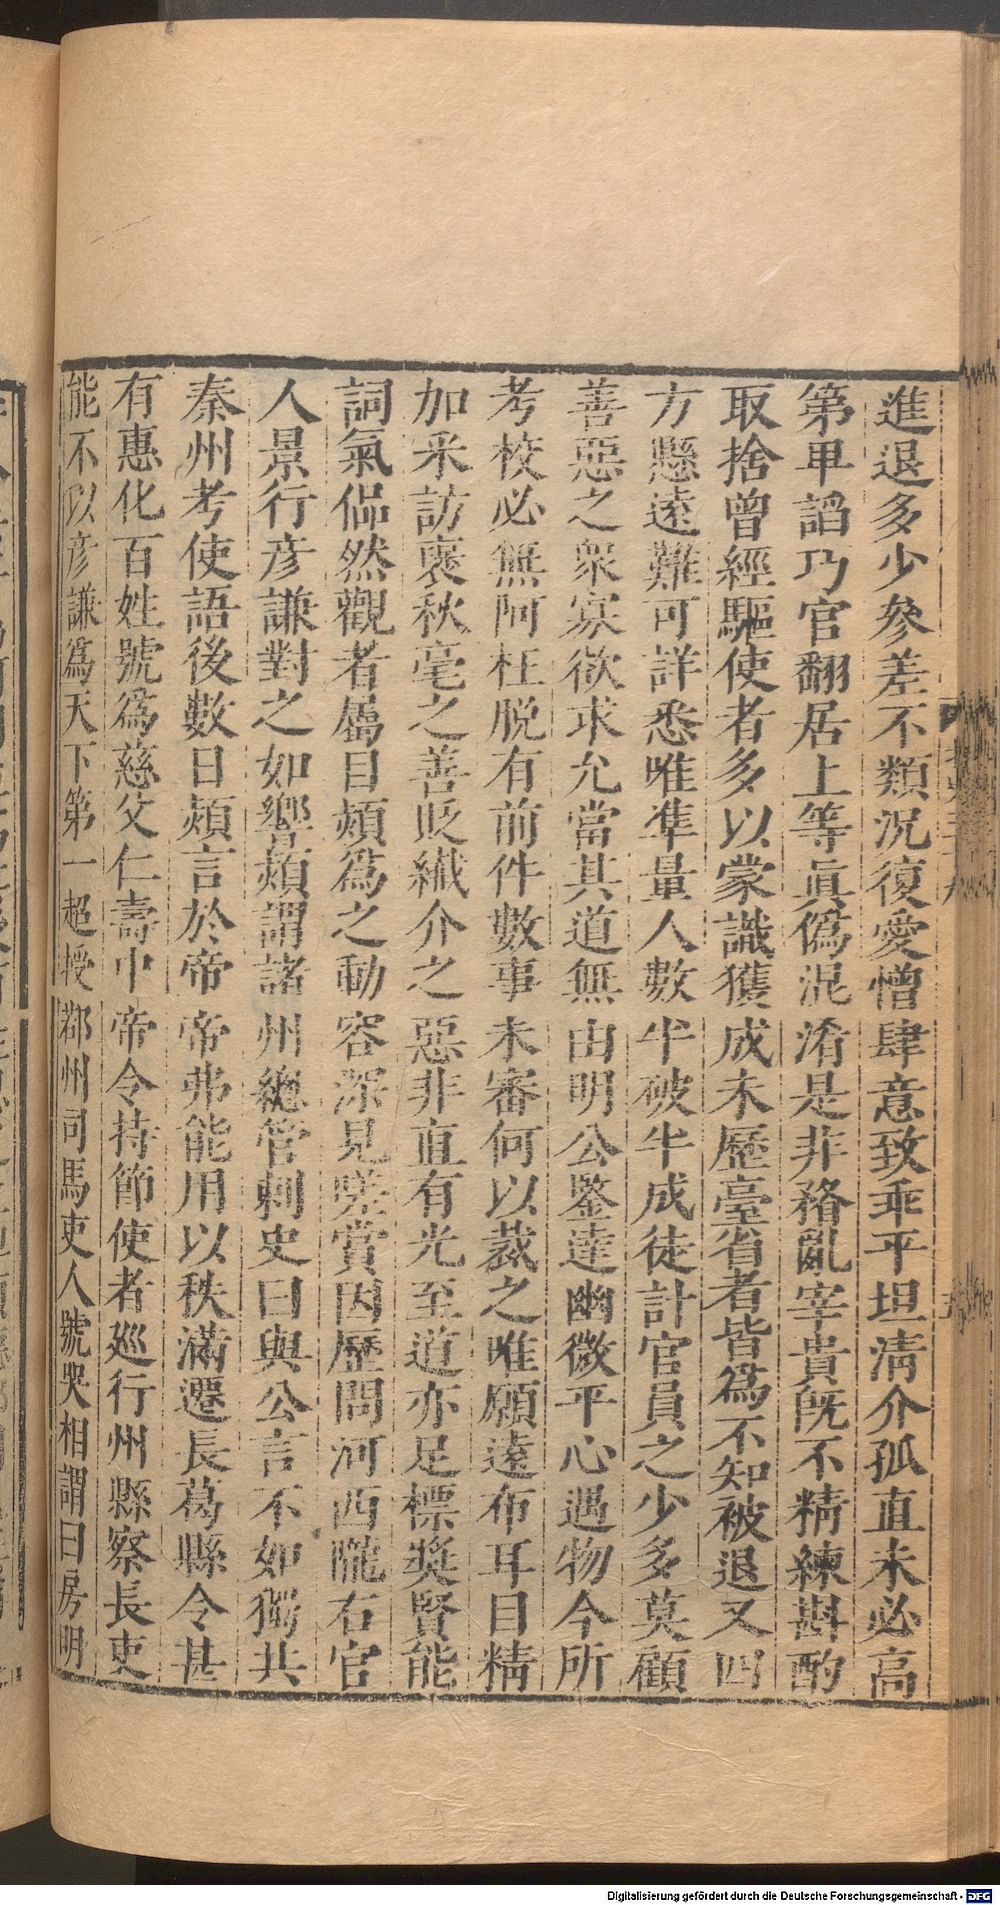 進退多少參差不類況復愛憎肆意致乖平坦清介孤直未必高
第卑諂巧官翻居上等眞僞混淆是非瞀亂宰貴旣不精練斟酌
取捨曾經驅使者多以蒙識獲成未歷臺省者皆爲不知被退又四
方懸遠難可詳悉唯準量人數半破半成徒計官員之少多莫顧
善惡之衆寡欲求允當其道無由明公鑒達幽微平心遇物今所
考校必無阿枉脱有前件數事未審何以裁之唯願遠布耳目精
加采訪褒秋毫之善貶纖介之惡非直有光至道亦足標奬賢能
詞氣侃然觀者屬目熲爲之動容深見嗟賞因歷問河西隴右官
人景行彦謙對之如響熲謂諸州總管刺史曰與公言不如獨共
秦州考使語後數日熲言於帝帝弗能用以秩滿遷長葛縣令甚
有惠化百姓號爲慈父仁壽中帝令持節使者巡行州縣察長吏
能不以彦謙爲天下第一超授鄀州司馬吏人號哭相謂曰房明
Digitalisierung gefördert durch die Deutsche Forschungsgemeinschaft - DFG